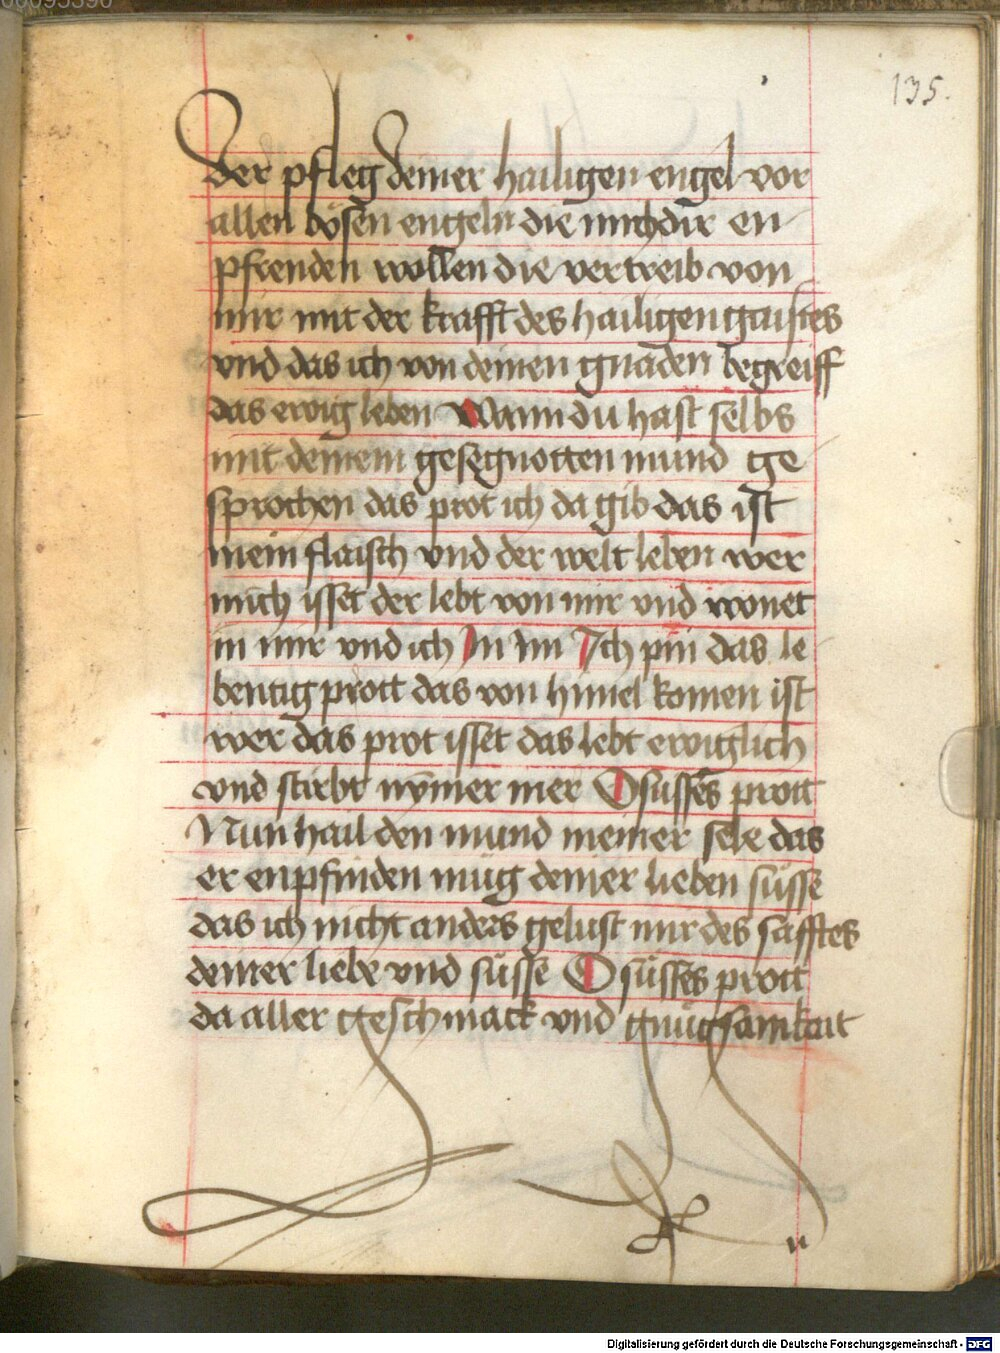 135.
der pfleg deiner hailigen engel vor
allen bösen engeln die mich dir en
pfrenden wollen die vertreib von
mir mit der krafft des hailigen gaistes
vnd das ich von deinen gnaden begreiff
das ewig leben Wann du hast selbs
mit deinem gesegnotten mund ge
sprochen das prot ich da gib das ist
mein flaisch vnd der welt leben wer
mich isset der lebt von mir vnd wonet
in mir vnd ich In Im Ich pin das le
bentig prott das von himel komen ist
wer das prot isset das lebt ewigklich
vnd stirbt nymer mer O süsses prott
Nun hail den mund meiner sele das
er enpfinden müg deiner lieben süsse
das ich nicht anders gelust mir des safftes
deiner liebe vnd süsse O süsses prott
da aller geschmack vnd gnügsamkait
Digitalisierung gefördert durch die Deutsche Forschungsgemeinschaft - DFG